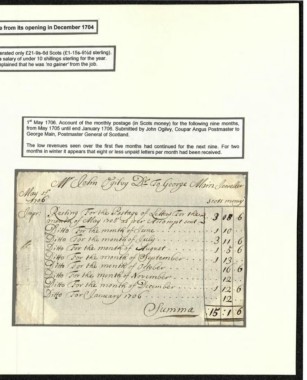 e from its opening in December 1704
erated only £21-8s-6d Scots (£1-15s-8½d sterling).
a salary of under 10 shillings sterling for the year.
plained that he was 'no gainer' from the job.
1st May 1706. Account of the monthly postage (in Scots money) for the following nine months,
from May 1705 until end January 1706. Submitted by John Ogilvy, Coupar Angus Postmaster to
George Main, Postmaster General of Scotland.
The low revenues seen over the first five months had continued for the next nine. For two
months in winter it appears that eight or less unpaid letters per month had been received.
Mr John Ogilvy Dr To George Main
May 1st
1706
Scots money
Resting For the Postage of Letters For the
Month of May 1705 as per Accompt out 3 18 6
Ditto For the month of June 1 10
Ditto For the month of July 3 11 6
Ditto For the month of August 1 3 6
Ditto For the month of September 1 13
Ditto For the month of 10 6
Ditto For the month of November 12
Ditto For the month of December 1 12 6
Ditto For January 1706 12
Summa 15 1 6